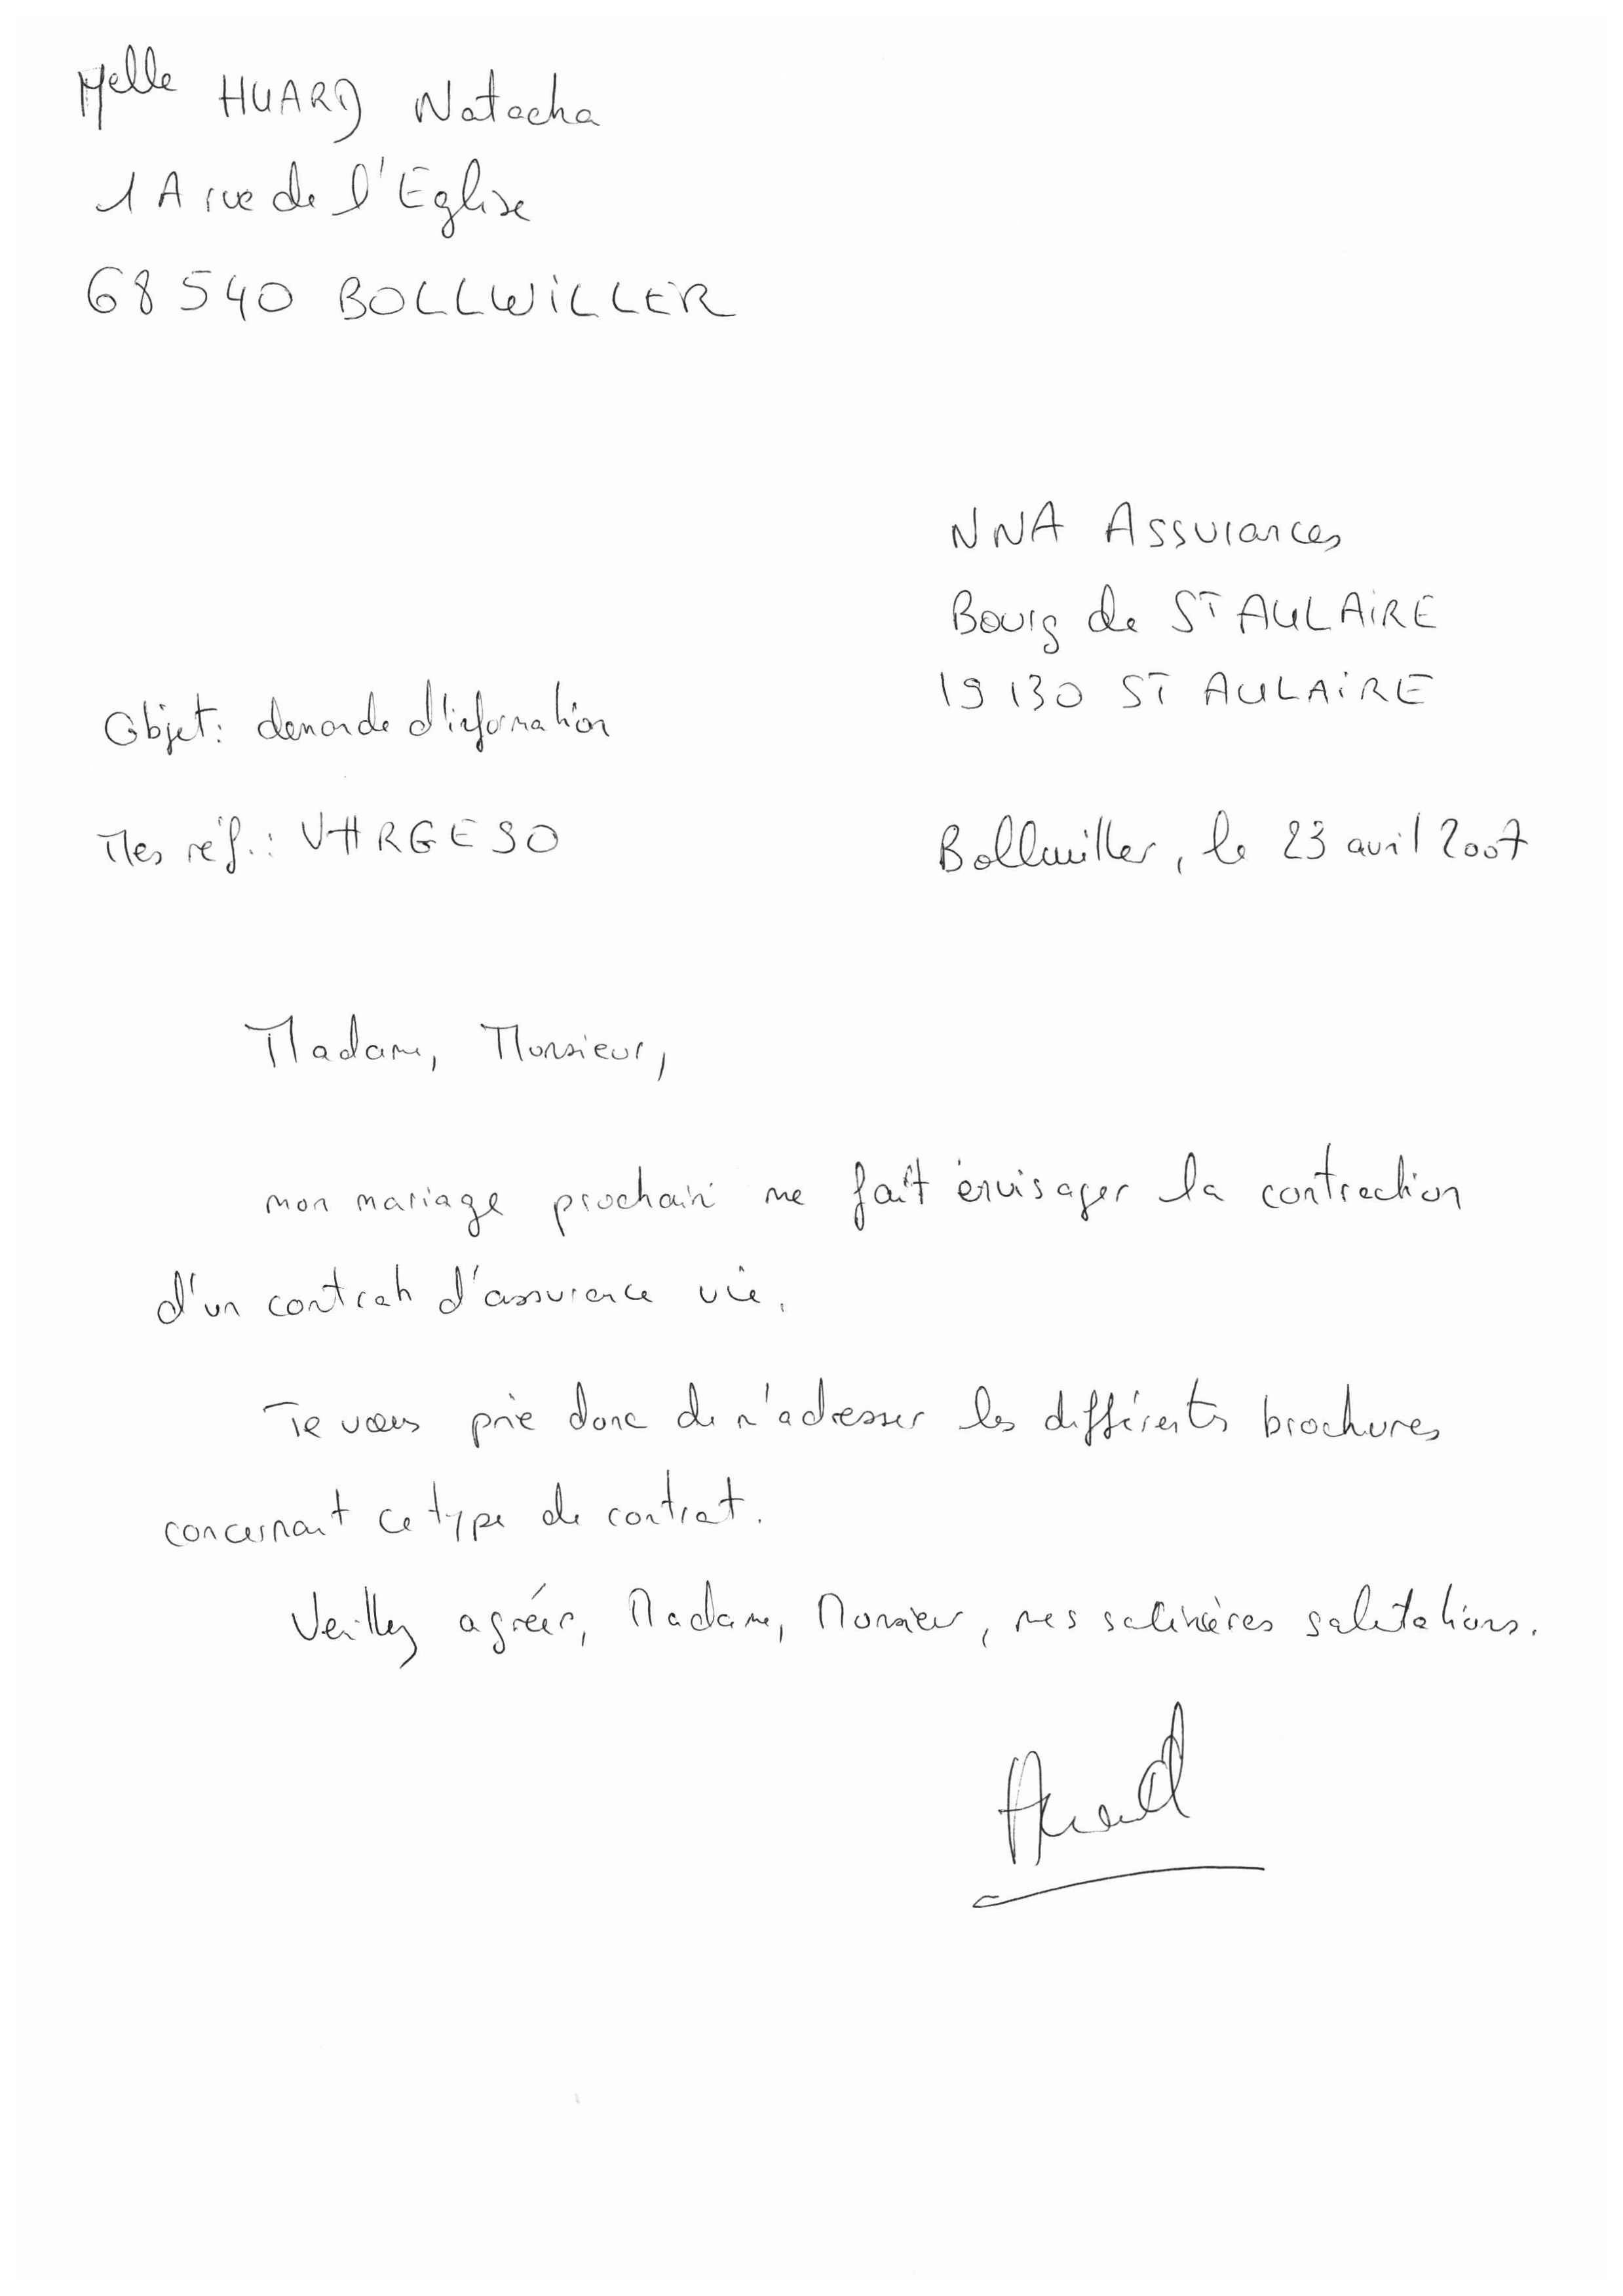 Melle HUARD Natacha
1 A rue de l'Eglise
68 540 BOLLWILLER
NNA Assurances
Bourg de ST AULAIRE
19 130 ST AULAIRE
Objet: demande d'information
Mes réf.: VHRGESO
Bollwiller, le 23 avril 2007
Madame, Monsieur,
mon mariage prochain me fait envisager la contraction
d'un contrat d'assurance vie.
Je vous prie donc de m'adresser les différents brochures
concernant ce type de contrat.
Veillez agréer, Madame, Monsieur, mes salutations.
Huard